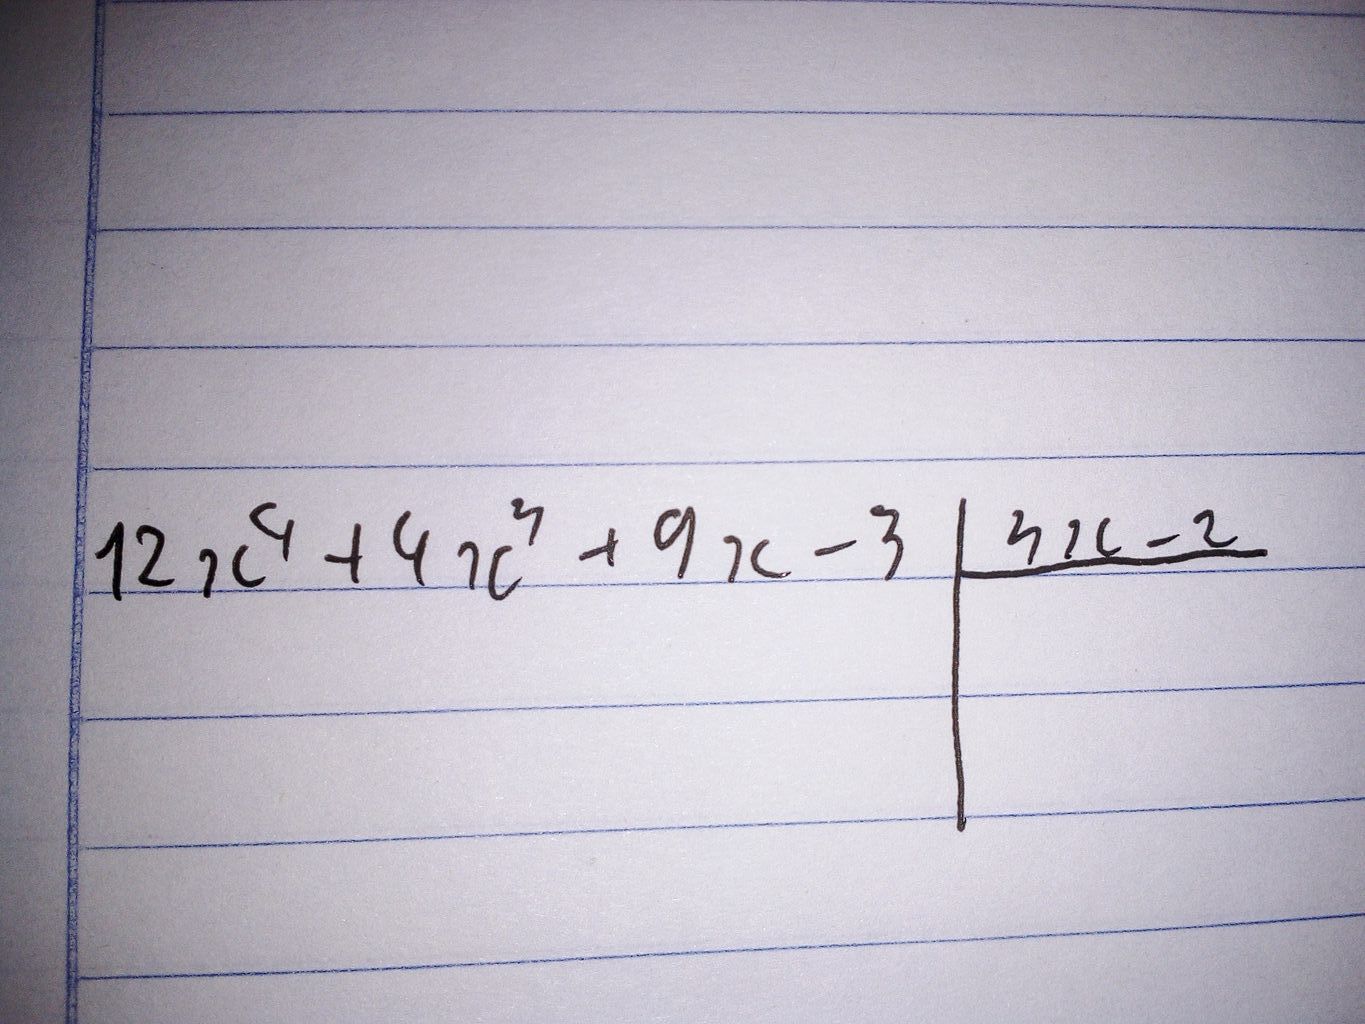 12x⁴ + 4x³ + 9x - 3 | 3x - 2